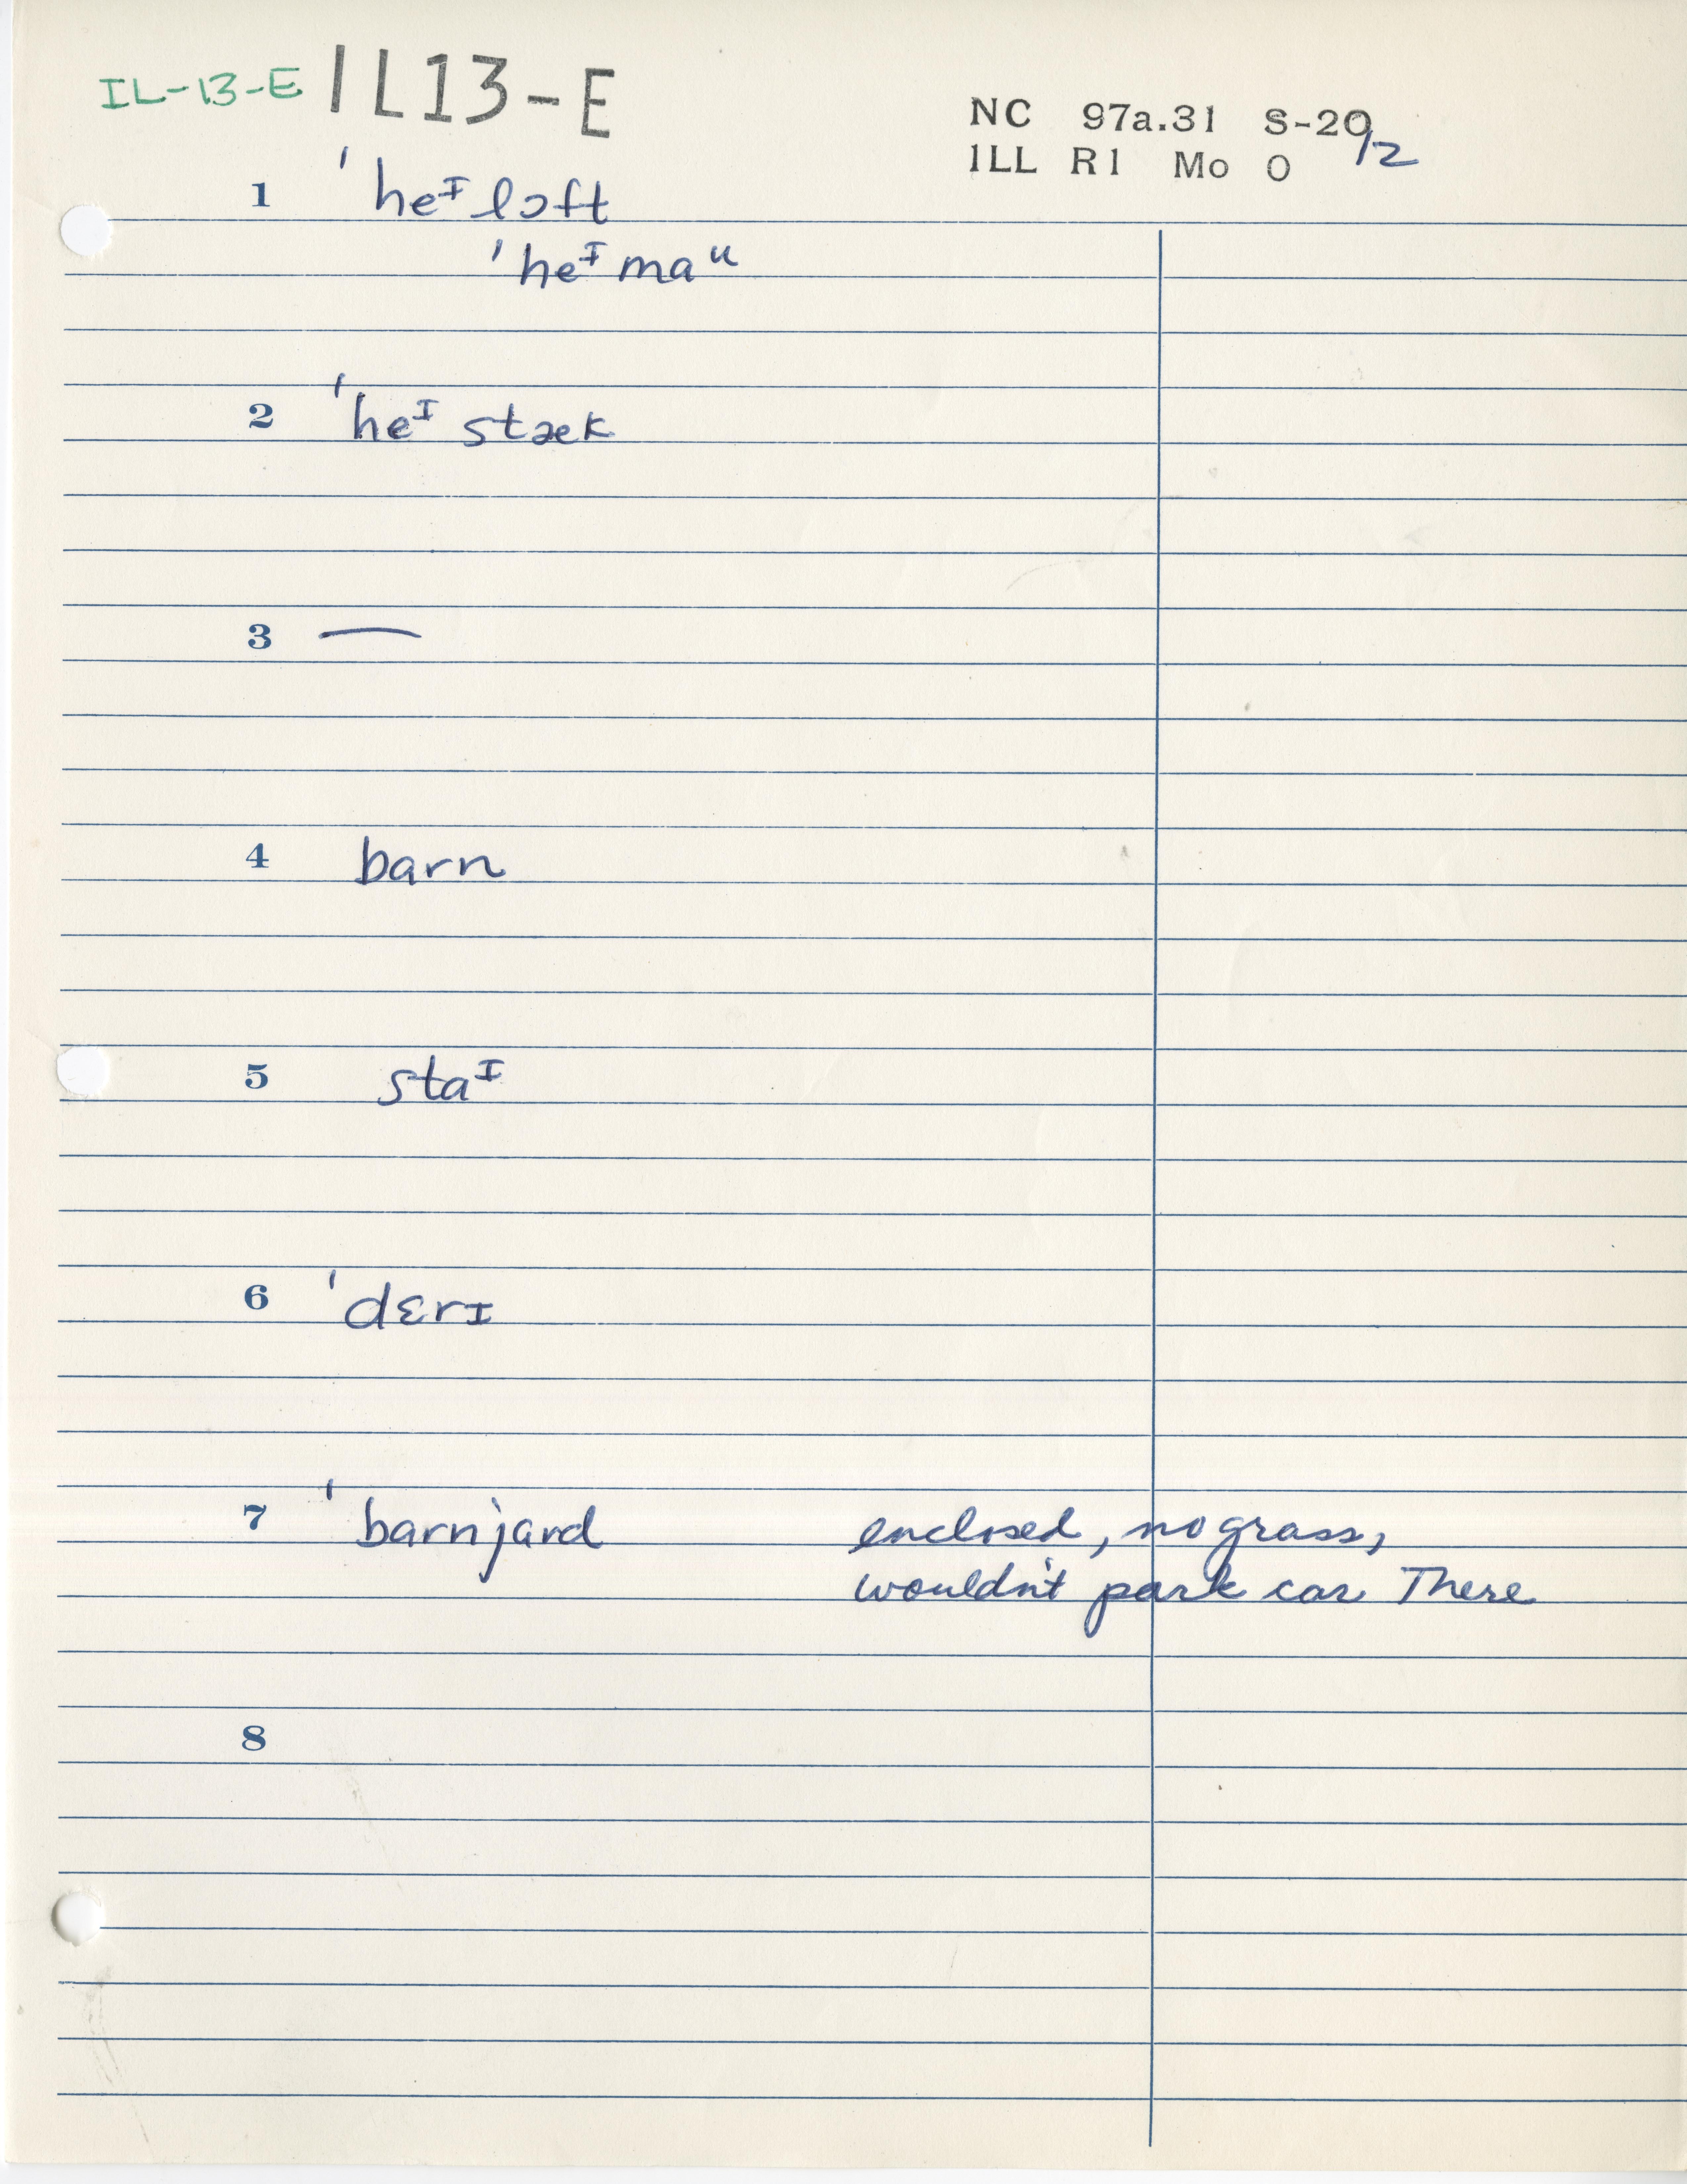 IL-13-E 1L13-E
NC 97a.31 S-20/2
1LL R1 Mo O
1 ˈheᴵlɔft
ˈheᴵmaᵘ
2 ˈheᴵ stæk
3 —
4 barn
5 staᴵ
6 ˈdɛrɪ
7 ˈbarnjard enclosed, no grass,
wouldn't park car There
8